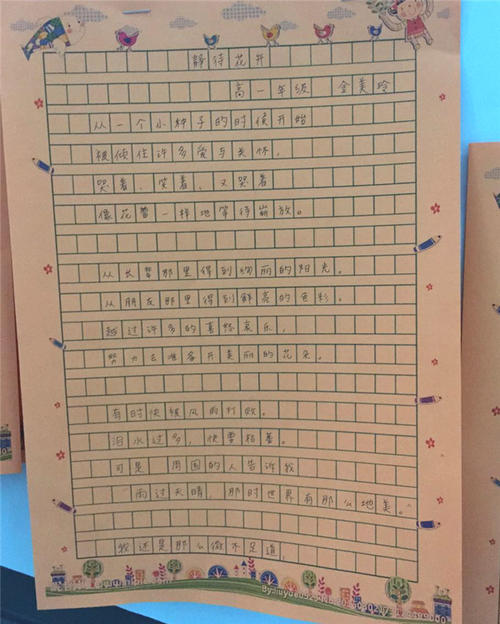 静待花开
高一年级 金美玲
从一个小种子的时候开始
被倾住许多爱与关怀，
哭着、笑着、又哭着
像花蕾一样地等待崩放。
从长辈那里得到绚丽的阳光。
从朋友那里得到鲜亮的色彩。
越过许多的喜怒哀乐，
努力去准备开美丽的花朵。
有时快被风雨打败。
泪水过多，快要枯萎。
可是 周围的人告诉我
雨过天晴，那时世界有那么地美。
我还是那么微不足道，